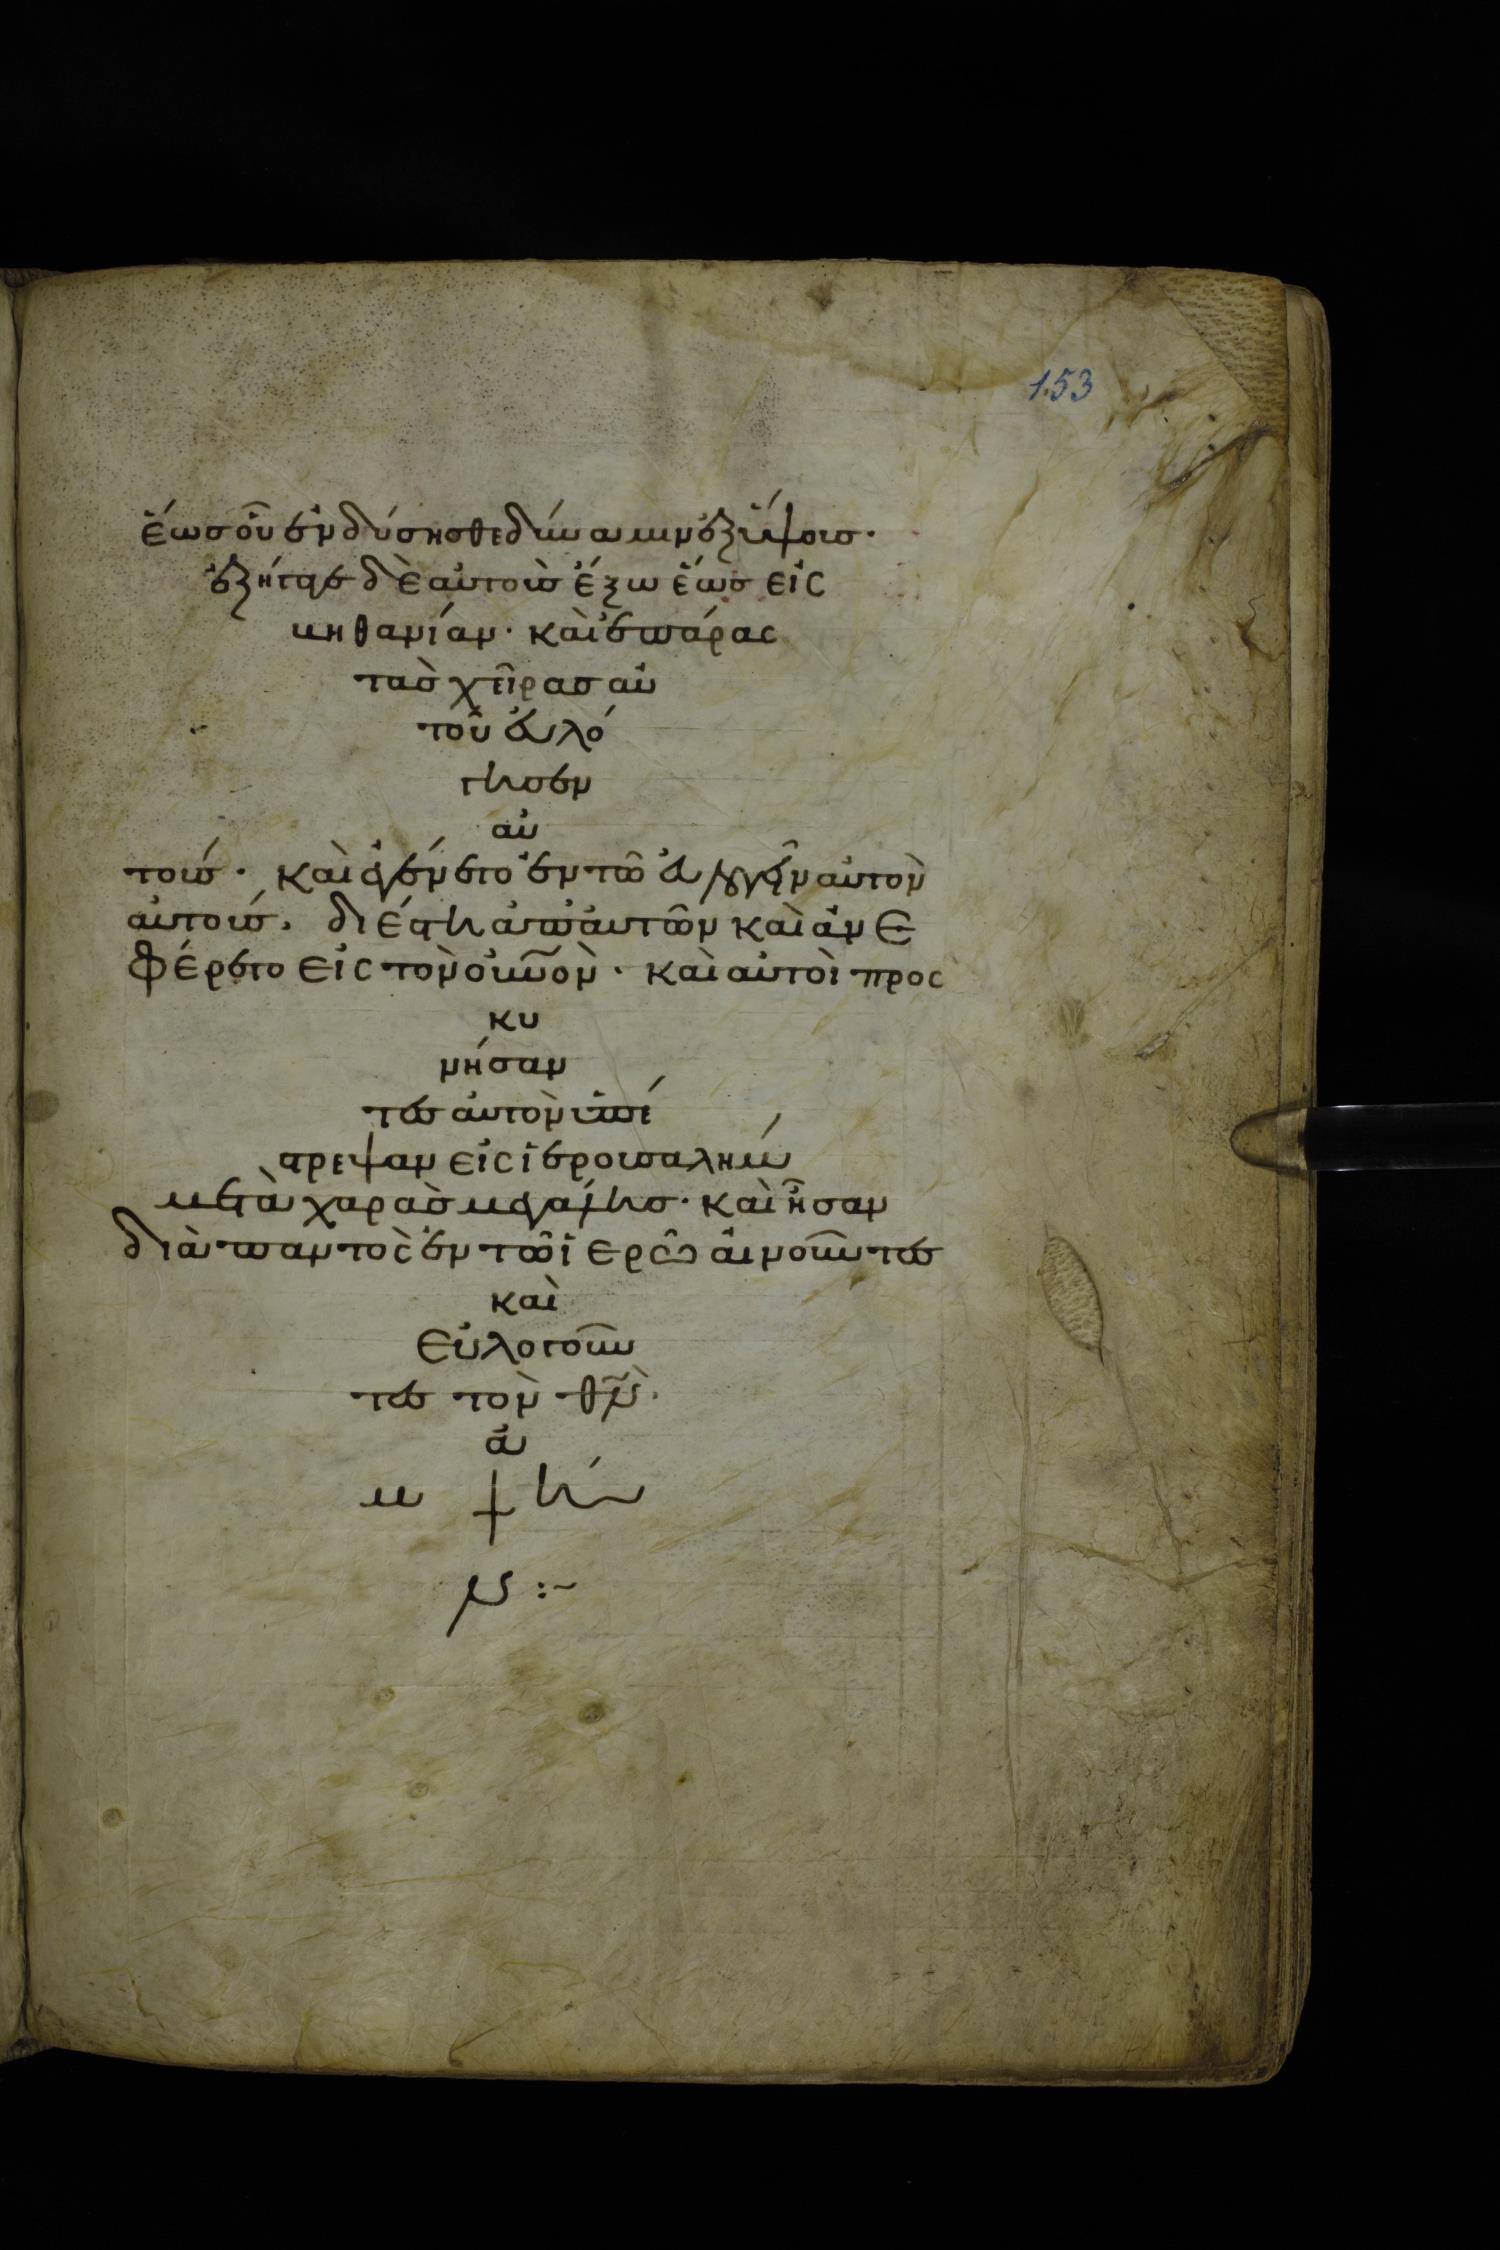 153
ἕως οὗ ἐνδύσησθε δύναμιν ἐξ ὕψους·
ἐξήγαγε δὲ αὐτοὺς ἔξω ἕως εἰς
βηθανίαν· καὶ ἐπάρας
τὰς χεῖρας αὐ
τοῦ εὐλό
γησεν
αὐ
τούς· καὶ ἐγένετο ἐν τῶ εὐλογεῖν αὐτὸν
αὐτούς, διέστη ἀπ' αὐτῶν καὶ ἀνε
φέρετο εἰς τὸν οὐνον· καὶ αὐτοὶ προς
κυ
νήσαν
τες αὐτὸν ὑπέ
στρεψαν εἰς ἱερουσαλὴμ
μετὰ χαρᾶς μεγάλης· καὶ ἦσαν
διὰ παντὸς ἐν τῶ ἱερῶ αἰνοῦντες
καὶ
εὐλογοῦν
τες τὸν θν·
ἀ
μ ή
ν :~